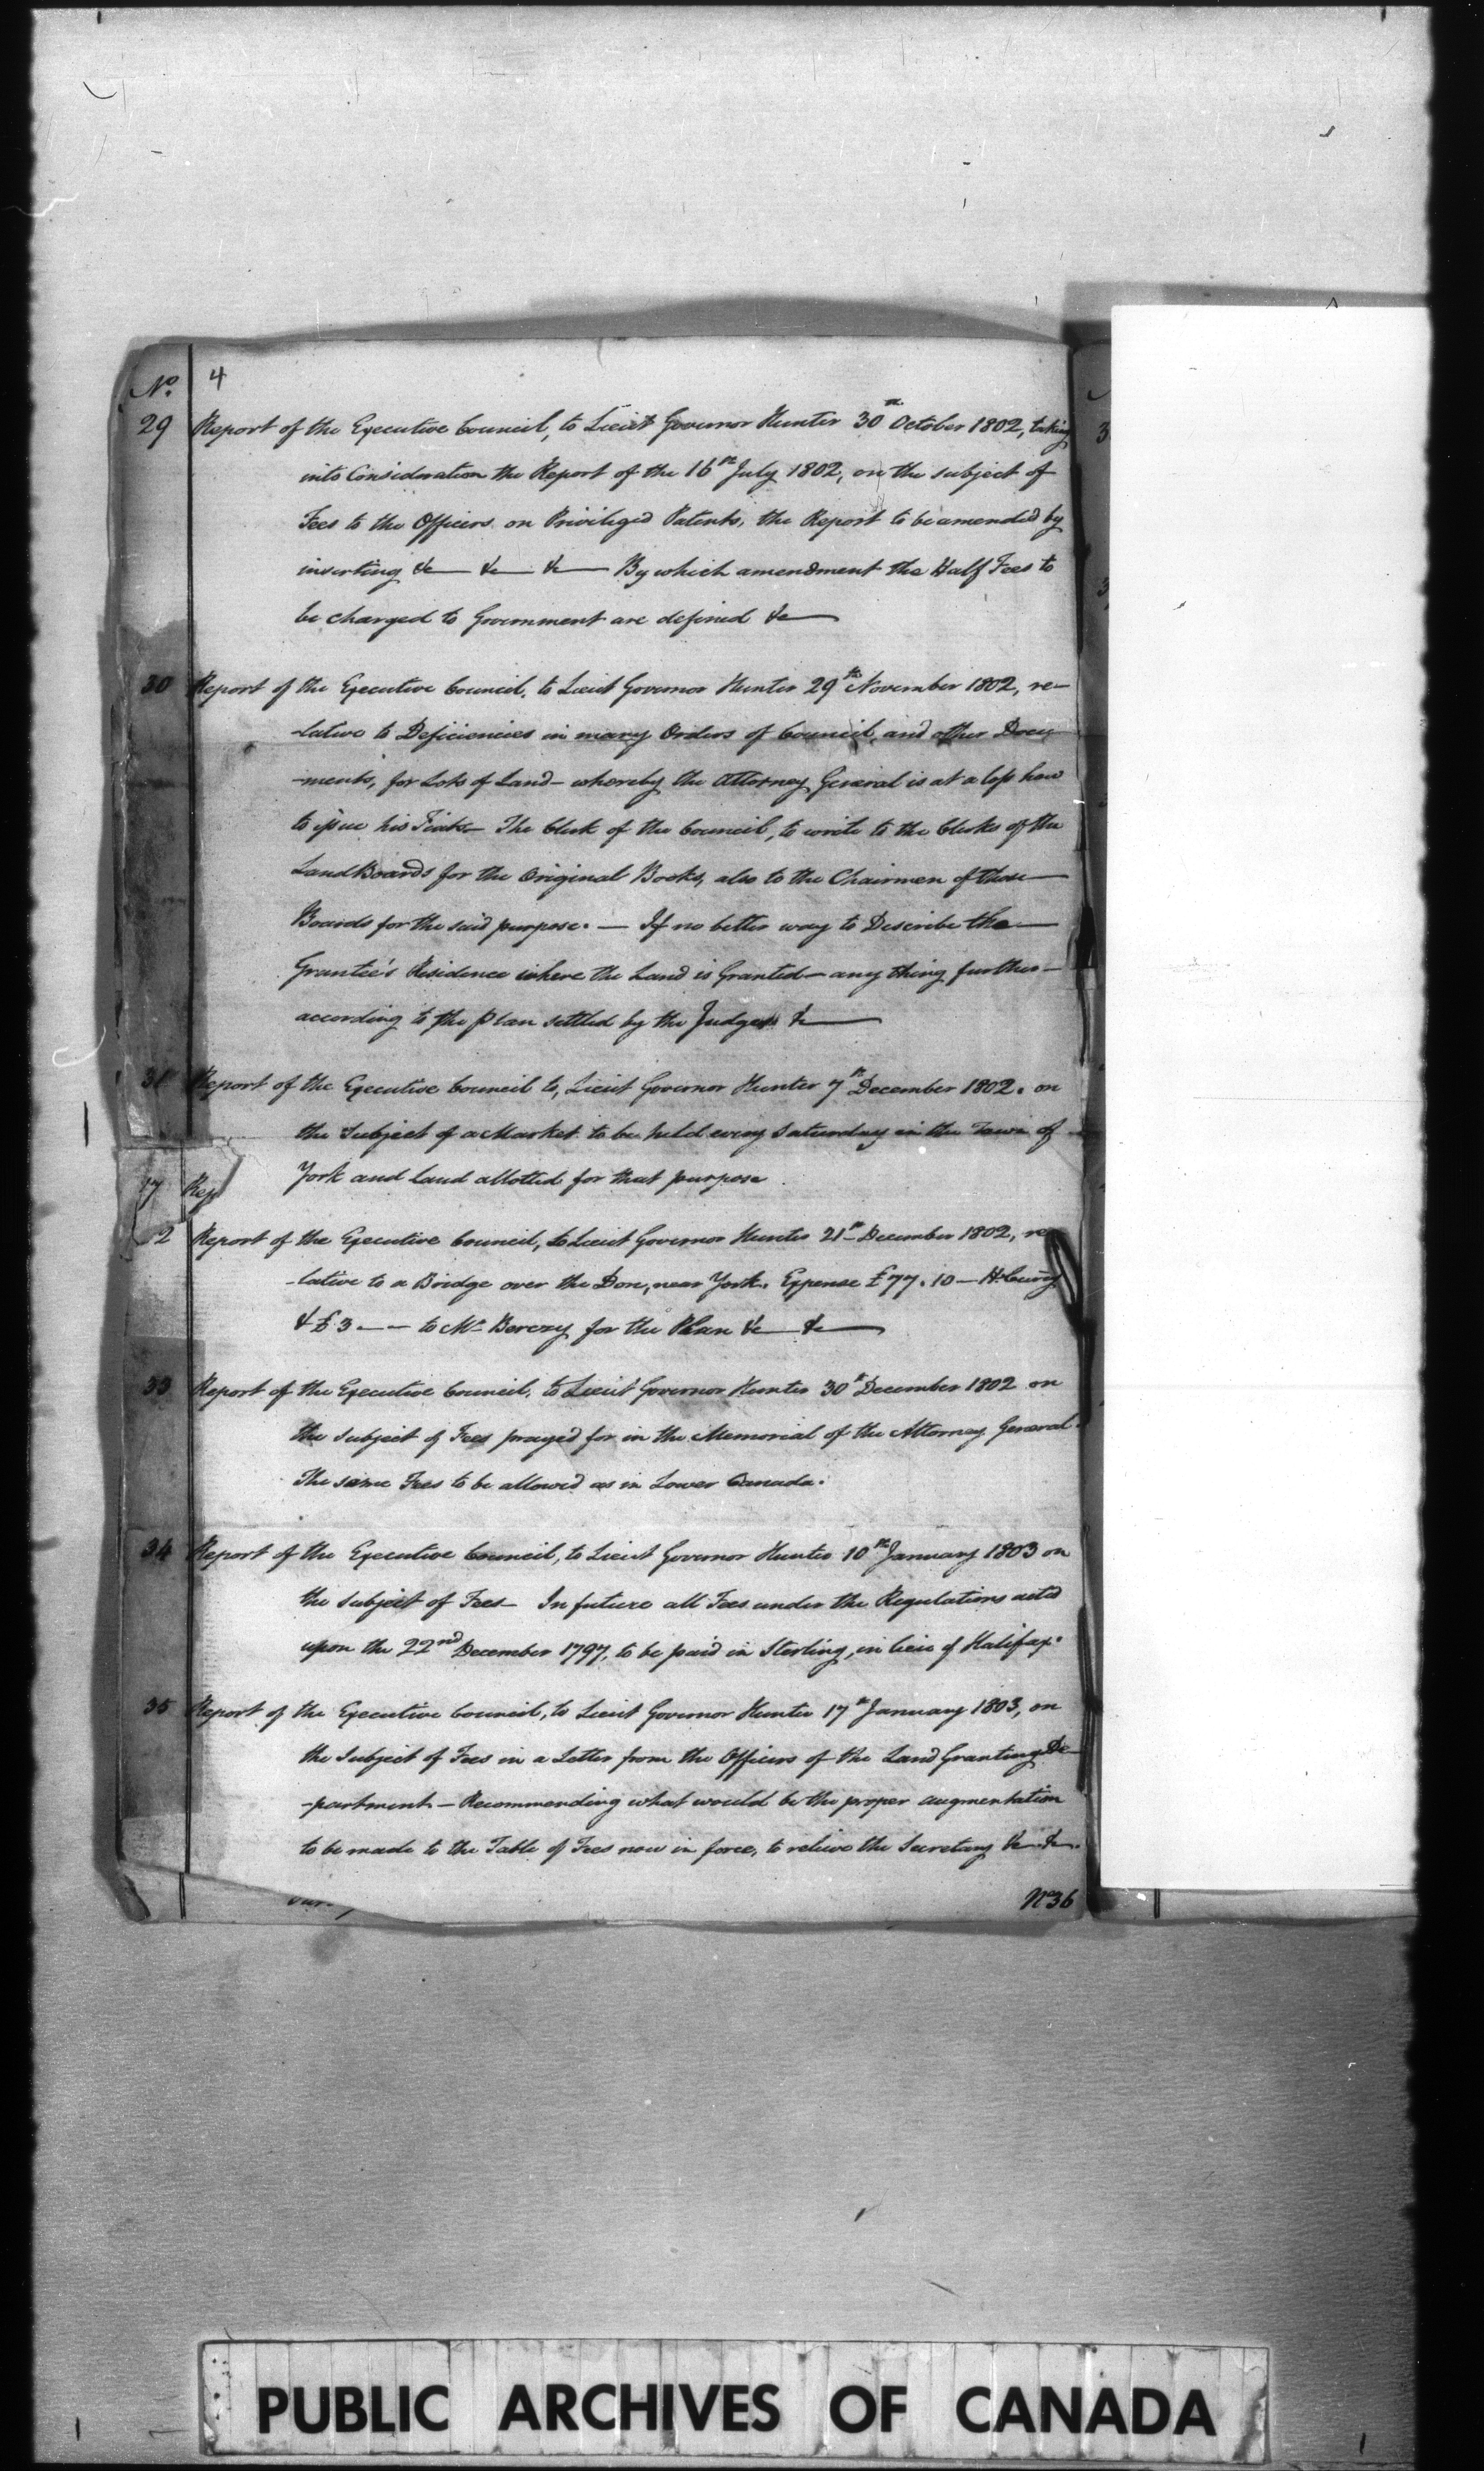 No. 4
29 Report of the Executive Council, to Lieut Governor Hunter 30th October 1802, taking
into Consideration the Report of the 16th July 1802, on the subject of
Fees to the Officers on Privileged Patents, the Report to be amended by
inserting &c &c &c By which amendment the Half Fees to
be charged to Government are defined &c
30 Report of the Executive Council, to Lieut Governor Hunter 29th November 1802, re-
-lative to Deficiencies in many Orders of Council, and other Docu
-ments, for Lots of Land - whereby the Attorney General is at a loss how
to issue his Fiats - The Clerk of the Council, to write to the Clerks of the
Land Boards for the Original Books, also to the Chairmen of those
Boards for the said purpose. - If no better way to Describe the
Grantee's Residence where the Land is Granted - any thing further -
according to the plan settled by the Judges &c
31 Report of the Executive Council to, Lieut Governor Hunter 7th December 1802. on
the Subject of a Market to be held every Saturday in the Town of
York and land allotted for that purpose
7 Rep
2 Report of the Executive Council, to Lieut Governor Hunter 21st December 1802, re
-lative to a Bridge over the Don, near York. Expense £77.10 -
& £3 - - to Mr Berczy for the Plan &c &c
33 Report of the Executive Council, to Lieut Governor Hunter 30th December 1802 on
the subject of Fees prayed for in the Memorial of the Attorney General.
The same Fees to be allowed as in Lower Canada.
34 Report of the Executive Council, to Lieut Governor Hunter 10th January 1803 on
the subject of Fees - In future all Fees under the Regulations acted
upon the 22nd December 1797, to be paid in Sterling, in lieu of Halifax.
35 Report of the Executive Council, to Lieut Governor Hunter 17th January 1803, on
the Subject of Fees in a Letter from the Officers of the Land Granting De
-partment - Recommending what would be the proper augmentation
to be made to the Table of Fees now in force, to relieve the Secretary &c &c.
No 36
PUBLIC ARCHIVES OF CANADA